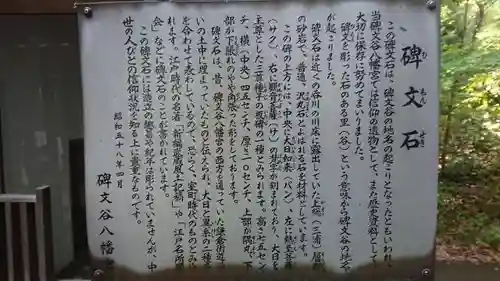 碑文石
ひもんせき
この碑文石は、碑文谷の地名の起こりとなったともいわれ、
当碑文谷八幡宮では信仰の遺物として、また歴史資料として
大切に保存に努めてまいりました。
碑文を彫った石のある里(谷)という意味から碑文谷の地名
が起こりました。
碑文石は近くの呑川の川床に露出していた上総(三浦)層群
の砂岩で、普通、沢丸石とよばれる石を材料としています。
この碑の上方には、中央に大日如来(バン)、左に勢至菩薩
(サク)、右に観音菩薩(サ)の梵字が刻まれており、大日を
主尊とした三尊種子の板碑の一種とみられます。高さ七五セン
チ、横(中央)四五センチ、厚さ二〇センチ、上部が隅で、下
部が下膨れのやや両張った形をしております。
碑文石は、昔、碑文谷八幡宮の西方を通っていた鎌倉街道
沿いの土中に埋まっていたものと伝えられ、大日と異系の二種子
を合わせて表わしているので、恐らく、室町時代のものとみら
れます。江戸時代の名著「新編武蔵風土記稿」や「江戸名所図
会」などに碑文石のことが書かれています。
この碑文石には造立の趣旨や紀年は彫られていませんが、中
世の人びとの信仰状況を知る上に貴重なものです。
昭和五十八年四月
碑文谷八幡